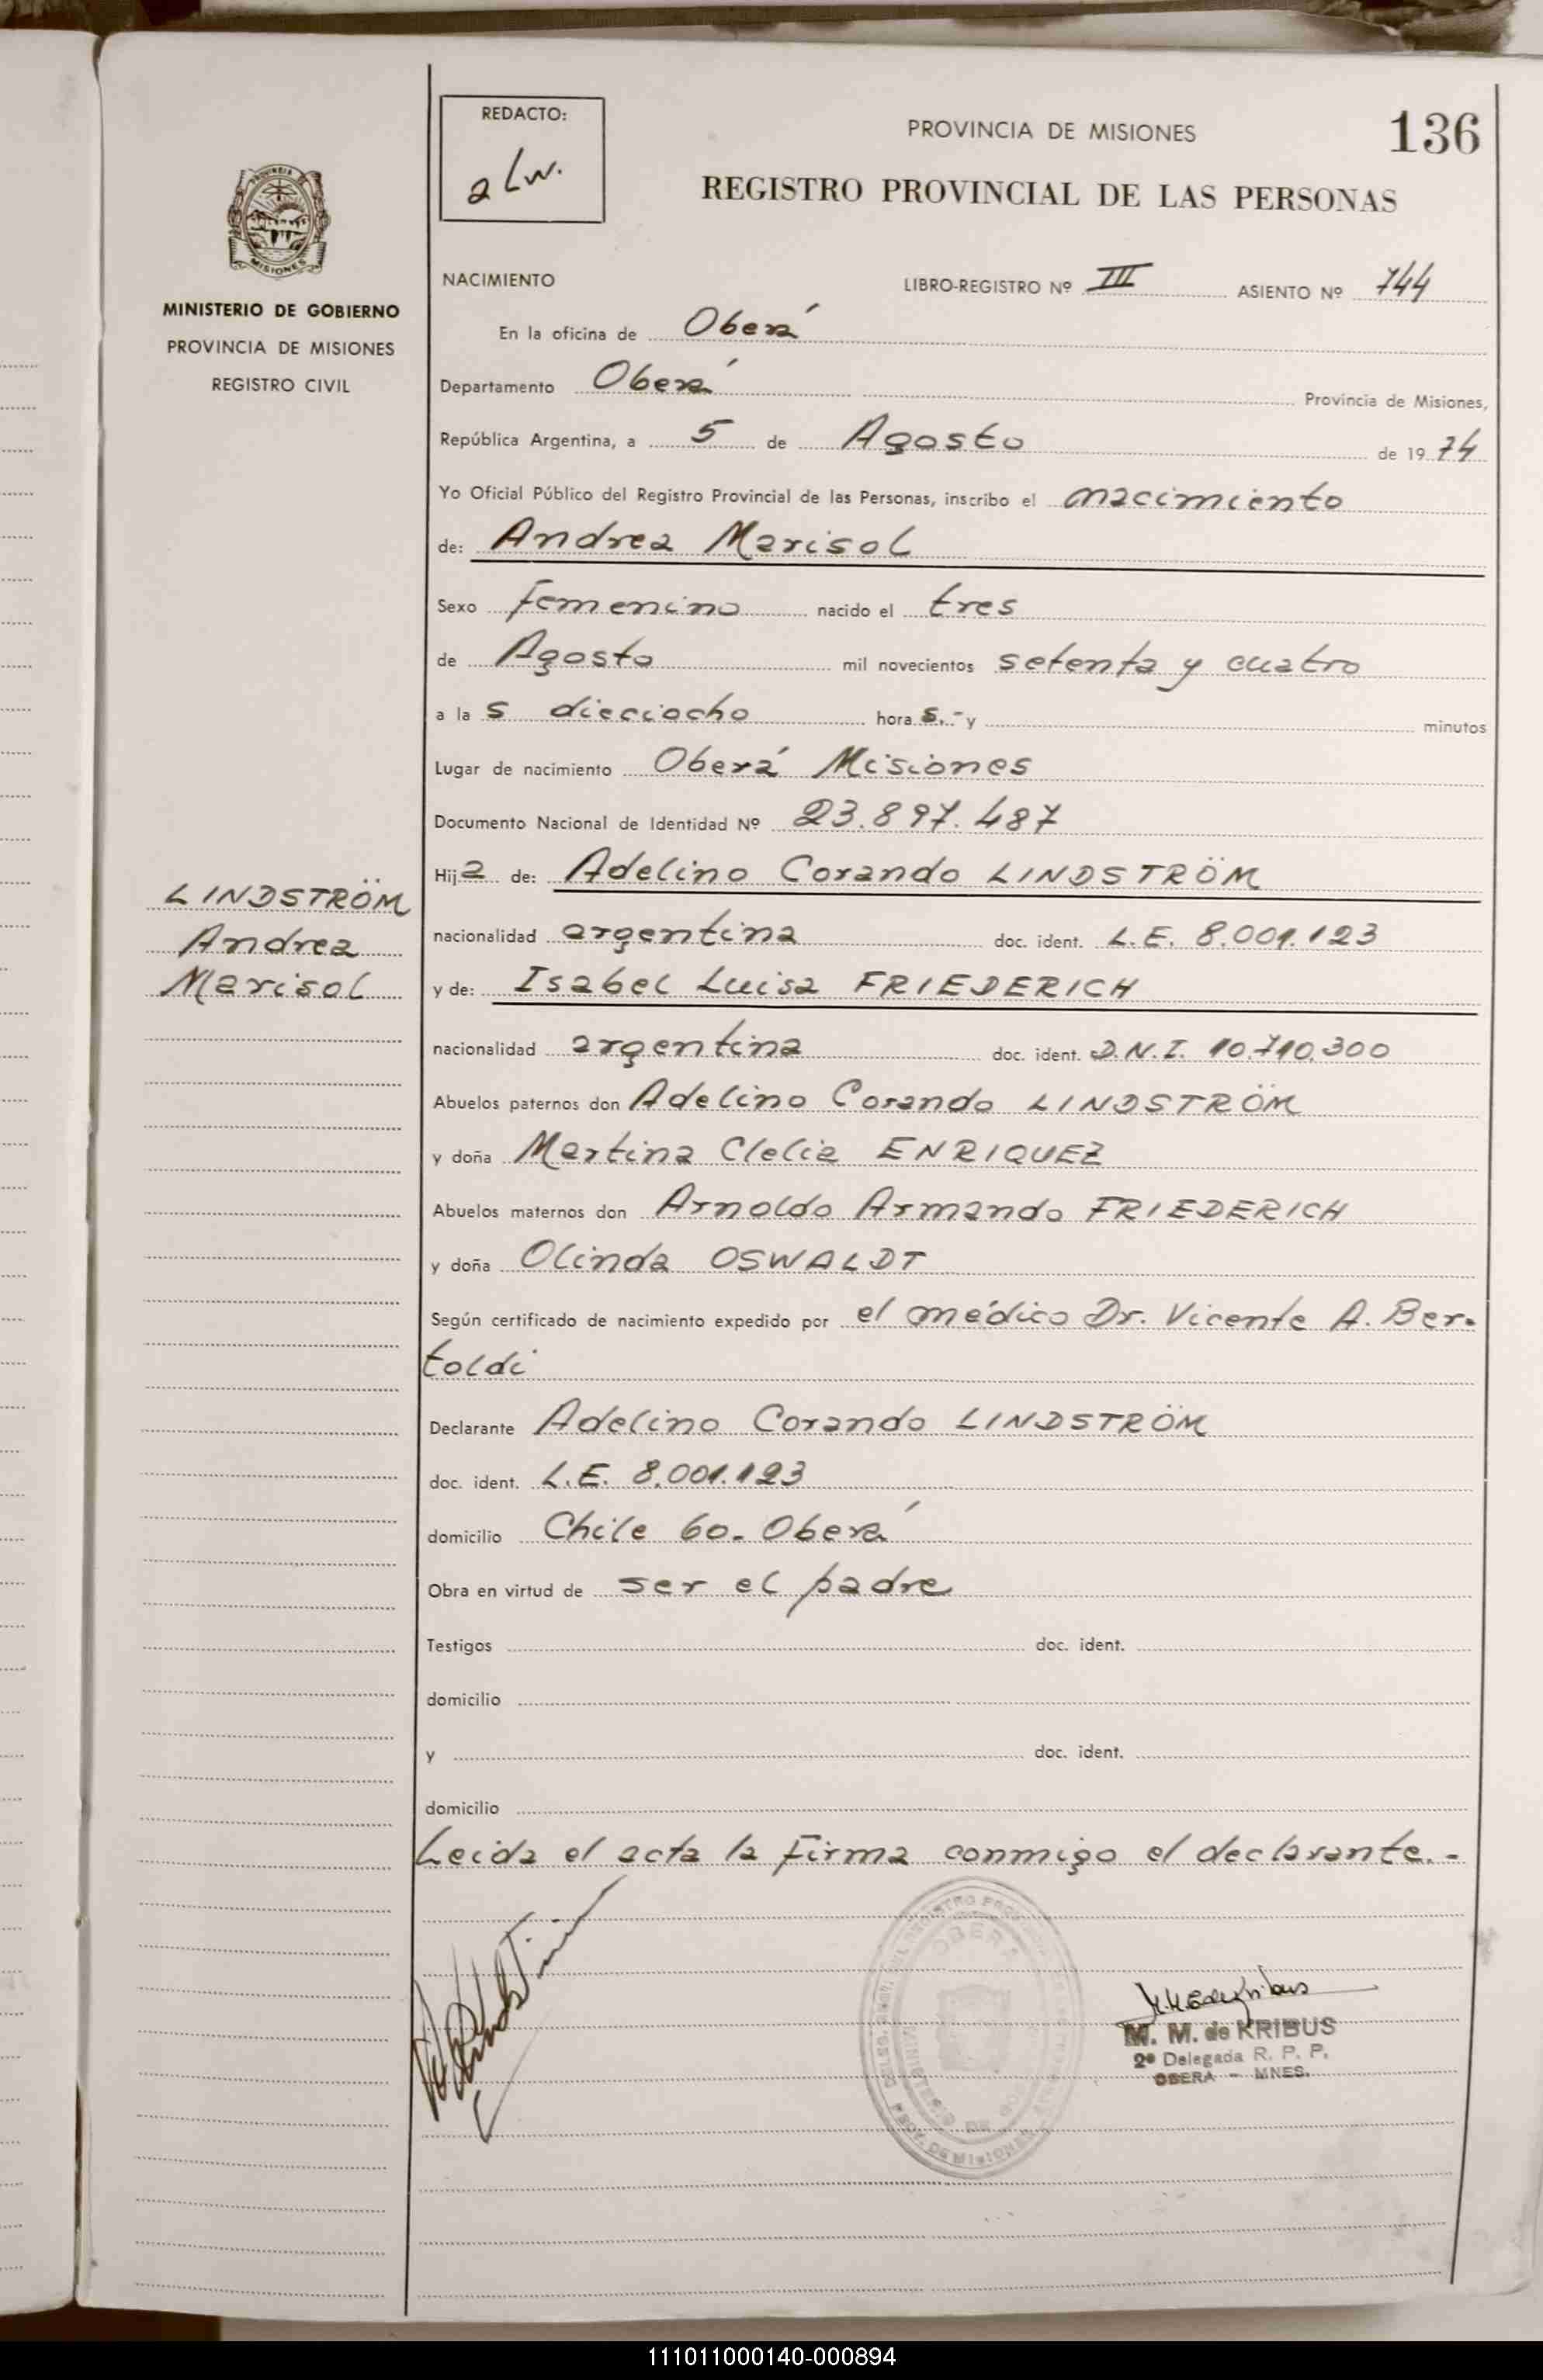 136
REDACTO:
PROVINCIA DE MISIONES
REGISTRO PROVINCIAL DE LAS PERSONAS
MISIONES
MINISTERIO DE GOBIERNO
PROVINCIA DE MISIONES
REGISTRO CIVIL
NACIMIENTO LIBRO-REGISTRO Nº III ASIENTO Nº 744
En la oficina de Oberá
Departamento Oberá Provincia de Misiones,
República Argentina, a 5 de Agosto de 1974
Yo Oficial Público del Registro Provincial de las Personas, inscribo el nacimiento
de: Andrea Marisol
Sexo femenino nacido el tres
de Agosto mil novecientos setenta y cuatro
a las dieciocho horas.- y minutos
Lugar de nacimiento Oberá Misiones
Documento Nacional de Identidad Nº 23.897.487
Hija de: Adelino Corando LINDSTRÖM
LINDSTRÖM
Andrea
Marisol
nacionalidad argentina doc. ident. L.E. 8.001.123
y de: Isabel Luisa FRIEDERICH
nacionalidad argentina doc. ident. D.N.I. 10.710.300
Abuelos paternos don Adelino Corando LINDSTRÖM
y doña Martina Clelia ENRIQUEZ
Abuelos maternos don Arnoldo Armando FRIEDERICH
y doña Olinda OSWALDT
Según certificado de nacimiento expedido por el médico Dr. Vicente A. Ber-
toldi
Declarante Adelino Corando LINDSTRÖM
doc. ident. L.E. 8.001.123
domicilio Chile 60- Oberá
Obra en virtud de ser el padre
Testigos doc. ident.
domicilio
y doc. ident.
domicilio
Leida el acta la firma conmigo el declarante.-
OBERA
M. M. de KRIBUS
2ª Delegada R. P. P.
OBERA - MNES.
111011000140-000894